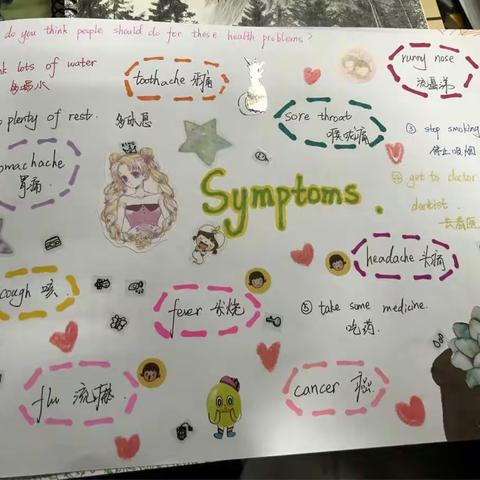 do you think people should do for these health problems?
lots of water
多喝水
toothache 牙痛
runny nose
流鼻涕
plenty of rest. 多休息
sore throat
喉咙痛
③ stop smoking
停止吸烟
stomachache
胃痛
get to doctor
dentist.
去看医
Symptoms.
headache 头痛
cough 咳
fever 发烧
⑤ take some medicine.
吃药.
flu 流感
cancer 癌